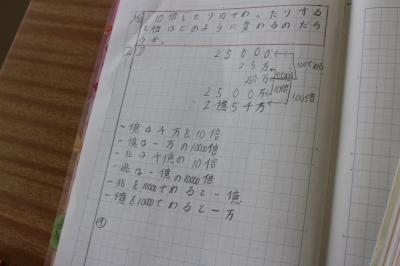 10倍したり10でわったりする
と位はどのように変わるのだろ
うか。
25000
25万
250万
2500万
2億5千万
10倍
100倍
一億は千万を10倍
一億は一万の10000倍
一兆は千億の10倍
一兆は一億の10000倍
一兆を10000でわると一億
一億を10000でわると一万